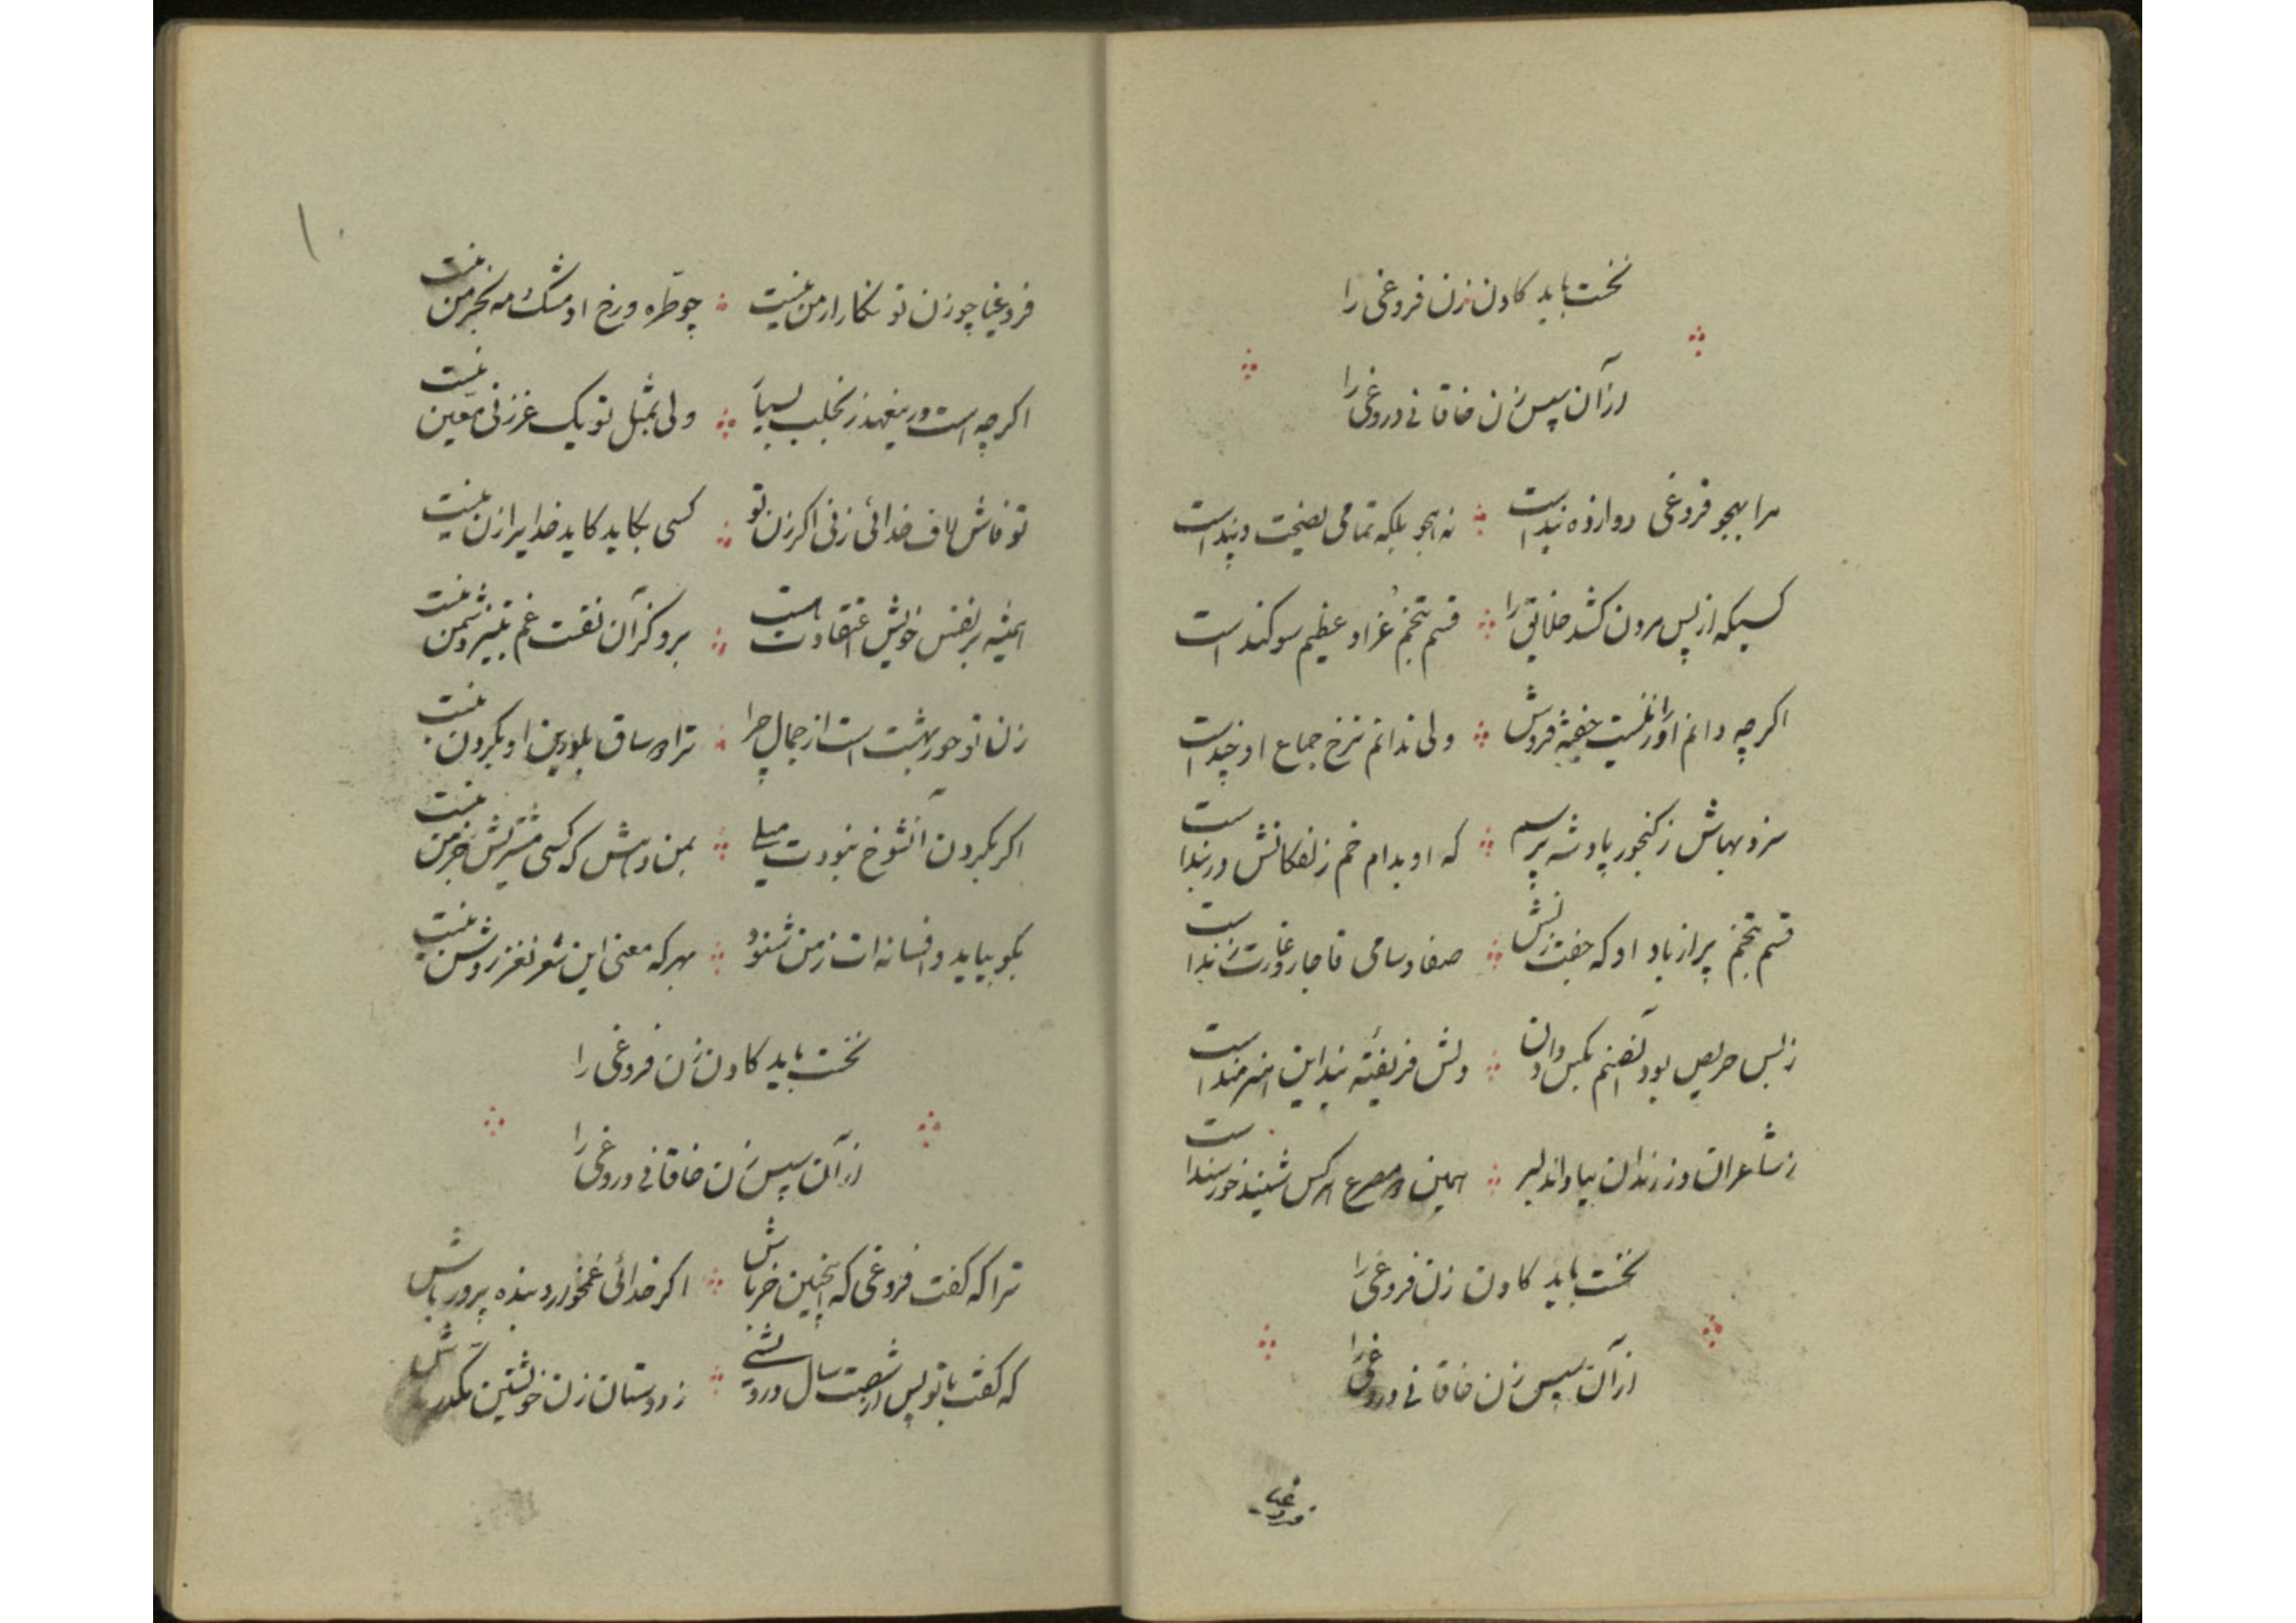 نخست باید کادن زن فروغی را
از آن سپس زن خاقانی دروغی را
مرا بهجو فروغی دوازده بند است نه هجو بلکه تمامی نصیحت و پند است
کسیکه از پس مردن کشد خلایق را قسم بتخم غر او عظیم سوکند است
اکرچه دانم او را نیست جفته فروش ولی ندانم نرخ جماع او چند است
سزد بهاش ز کنجور پادشه پرسم که او بدام خم زلفکانش در بند است
قسم بتخم پر از باد او که جفت زنش صفا و سامی قاجار و غارت زند است
ز بس حریص بود آنصنم بکس دادن دلش فریفتهٔ بند این هنرمند است
ز شاعران و ز رندان بیا و اندلبر همین دو مصرع هرکس شنید خورسند است
نخست باید کادن زن فروغی را
از آن سپس زن خاقانی دروغی را
فروغیا
۱۰
فروغیا چو زن تو نکار ارمن نیست چو طره و رخ او مشک و مه بخرمن نیست
اکرچه است درینعهد زنجلب بسیار ولی بمثل تو یک غرزنی معین نیست
تو فاش لاف خدائی زنی اکر زن تو کسی بکاید کاید خدایرا زن نیست
همیشه بر نفس خویش اعتقادت هست برو کز آن نفست غم بتیر و شمن نیست
زن تو حور بهشت است از جمال چرا ترا دو ساق بلورین او بکردن نیست
اکر بکردن آنشوخ نبودت میلی بمن دهش که کسی مشتریش جز من نیست
بکو بیاید و افسانه‌ات ز من شنود بهر که معنی این شعر نغز روشن نیست
نخست باید کادن زن فروغی را
از آن سپس زن خاقانی دروغی را
ترا که کفت فروغی که اینچنین خر باش اکر خدائی غمخوار و بنده پرور باش
که کفت با تو پس از شصت سال درویشی ز دوستان زن خویشتن مکدر باش